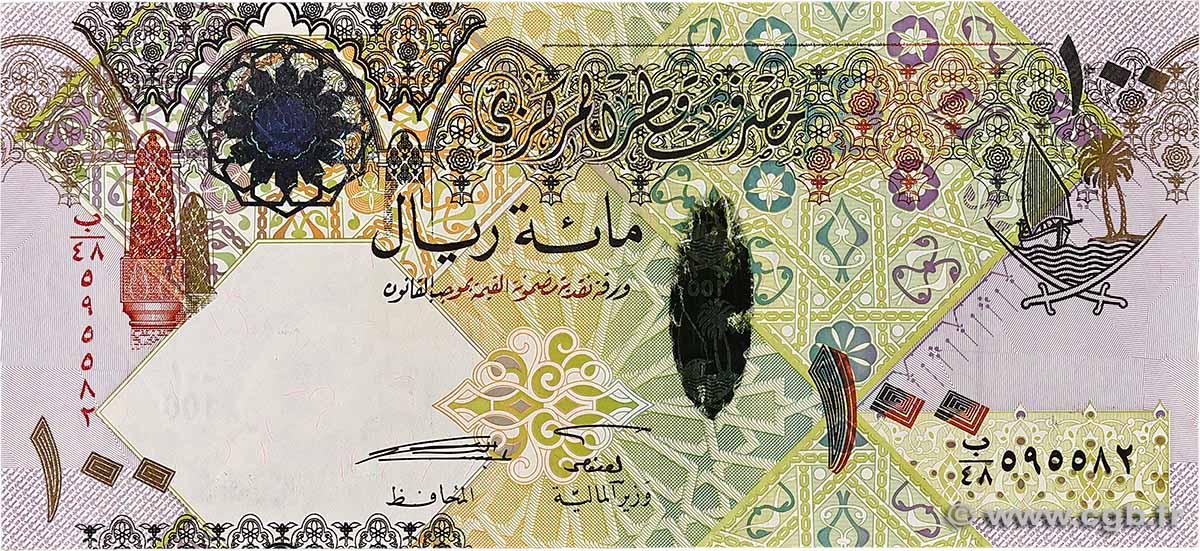 ١٠٠
مصرف قطر المركزي
مائة ريال
ورقة نقدية مضمونة القيمة بموجب القانون
ب/٤٨ ٥٩٥٥٨٢
١٠٠
100
١٠٠
وزير المالية
المحافظ
ب/٤٨ ٥٩٥٥٨٢
١٠٠
© www.cgb.fr